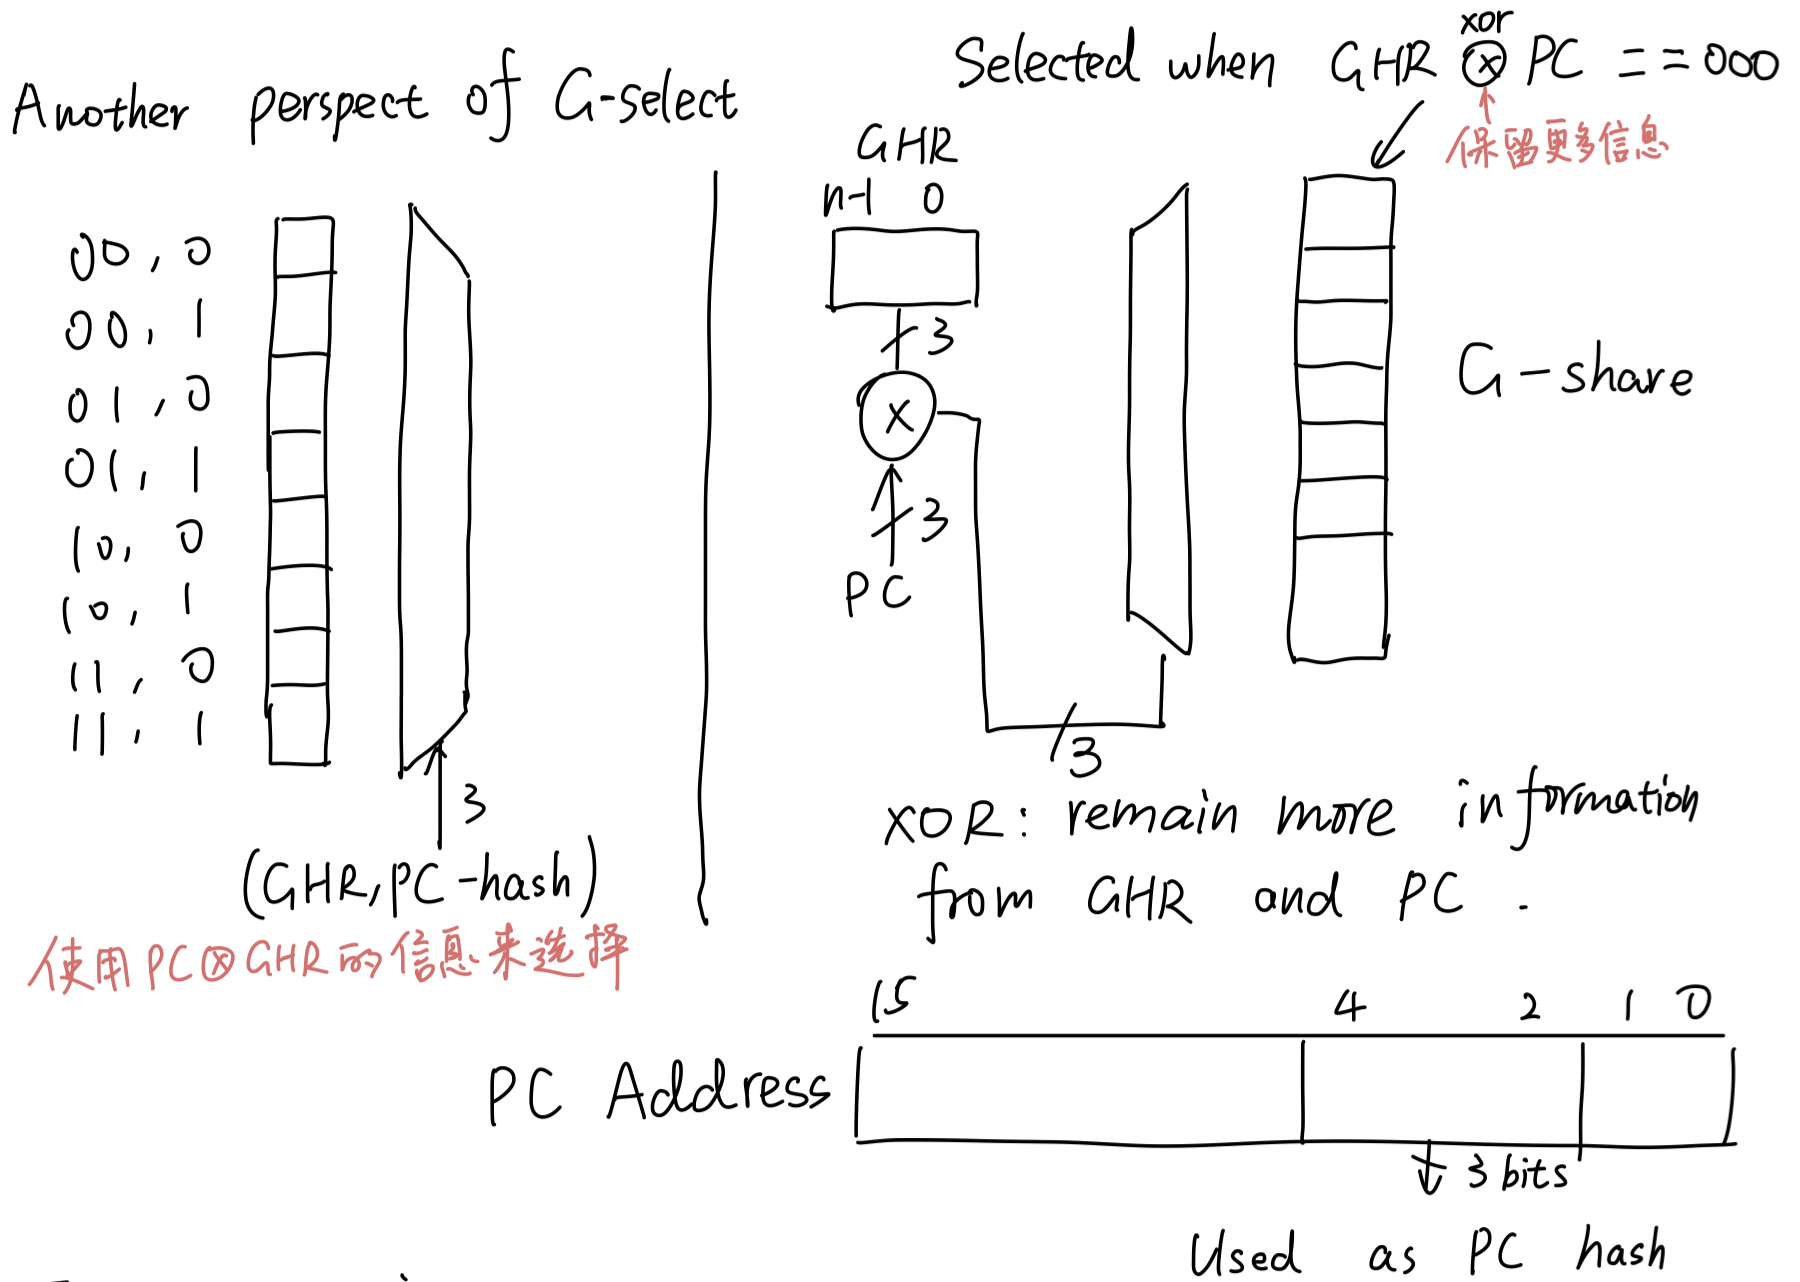 Another perspect of G-select
00, 0
00, 1
01, 0
01, 1
10, 0
10, 1
11, 0
11, 1
3
(GHR, PC-hash)
使用PC⊗GHR的信息来选择
xor
Selected when GHR ⊗ PC ==000
保留更多信息
GHR
n-1 0
3
X
3
PC
3
G-share
XOR: remain more information
from GHR and PC.
15 4 2 1 0
PC Address
3 bits
Used as PC hash